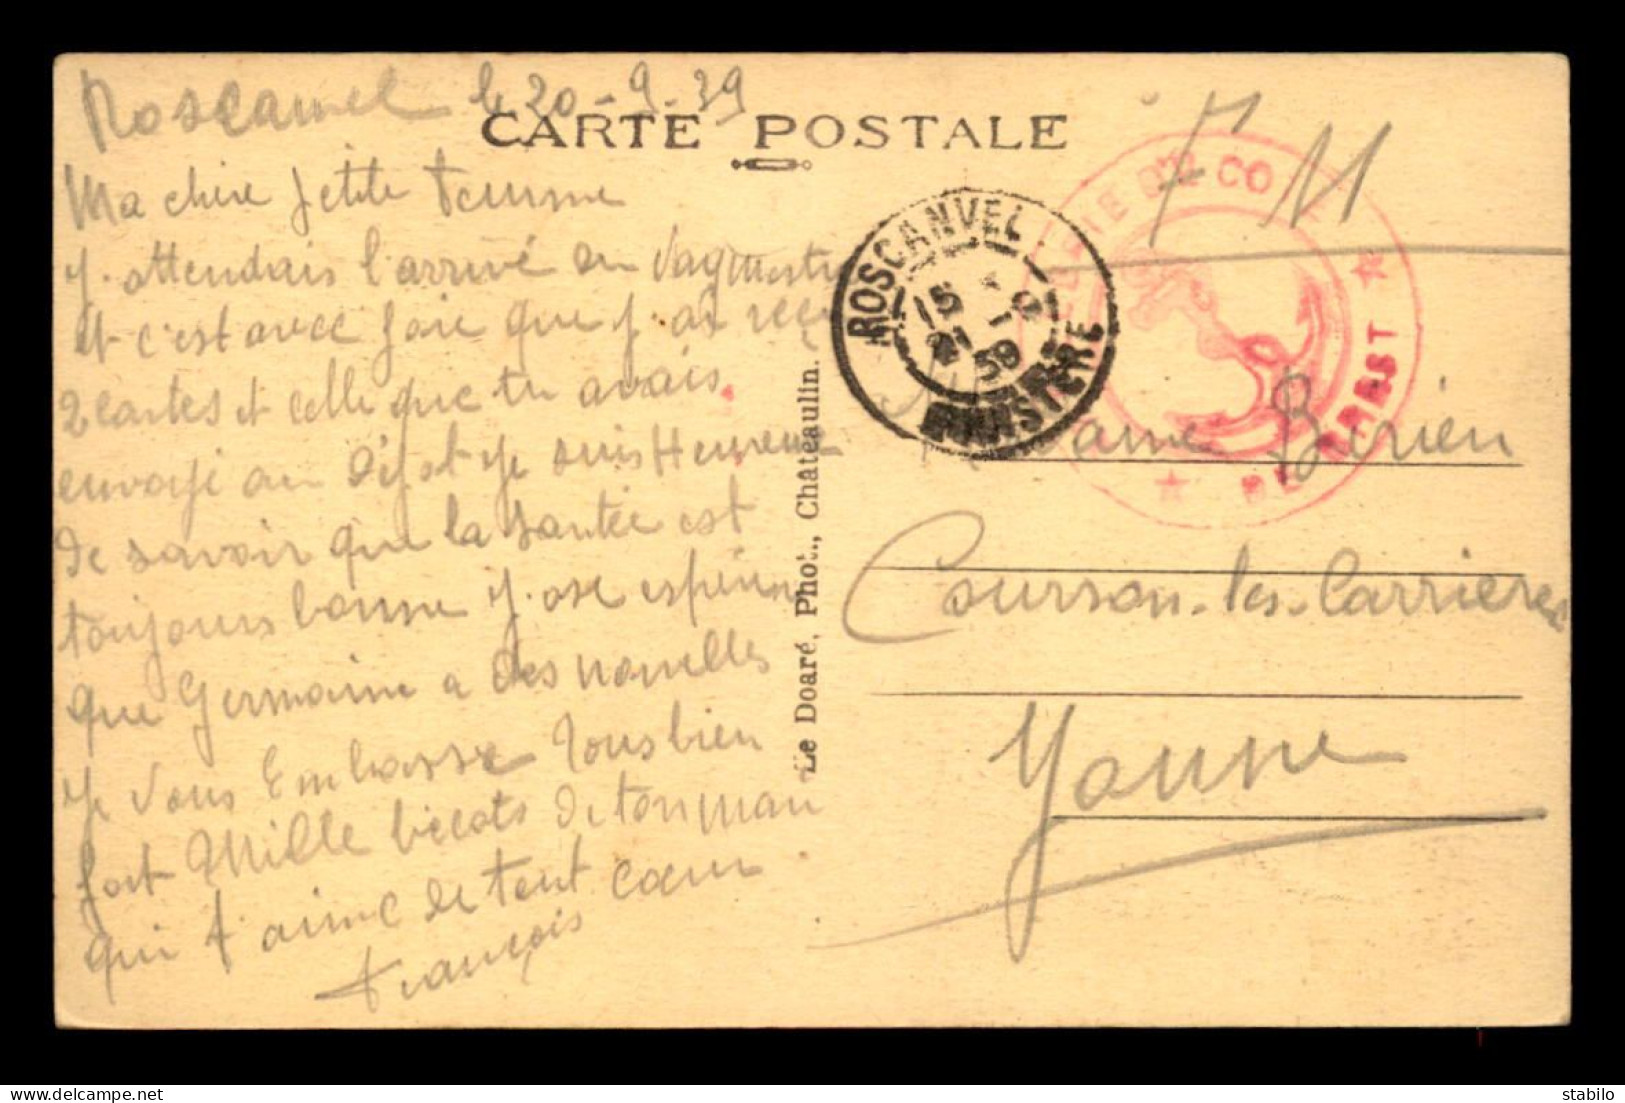 Roscanvel le 20-9-39
CARTE POSTALE
Ma chère petite Femme
J'attendais l'arrivé du Vagmestre
et c'est avec joie que j'ai reçu
2 cartes et celle que tu avais
envoyé au Dépot je suis Heureux
de savoir que la santée est
toujours bonne j'ose espérer
que Germaine a des nouvelles
je vous Embrasse tous bien
fort Mille bécots de ton mari
qui t'aime de tout cœur
François
Le Doaré, Phot., Chateaulin.
F M
ROSCANVEL
15
21 - 9
39
FINISTERE
D'A CO
DE BREST
Madame
Courson-les-Carrières
Yonne
stabilo